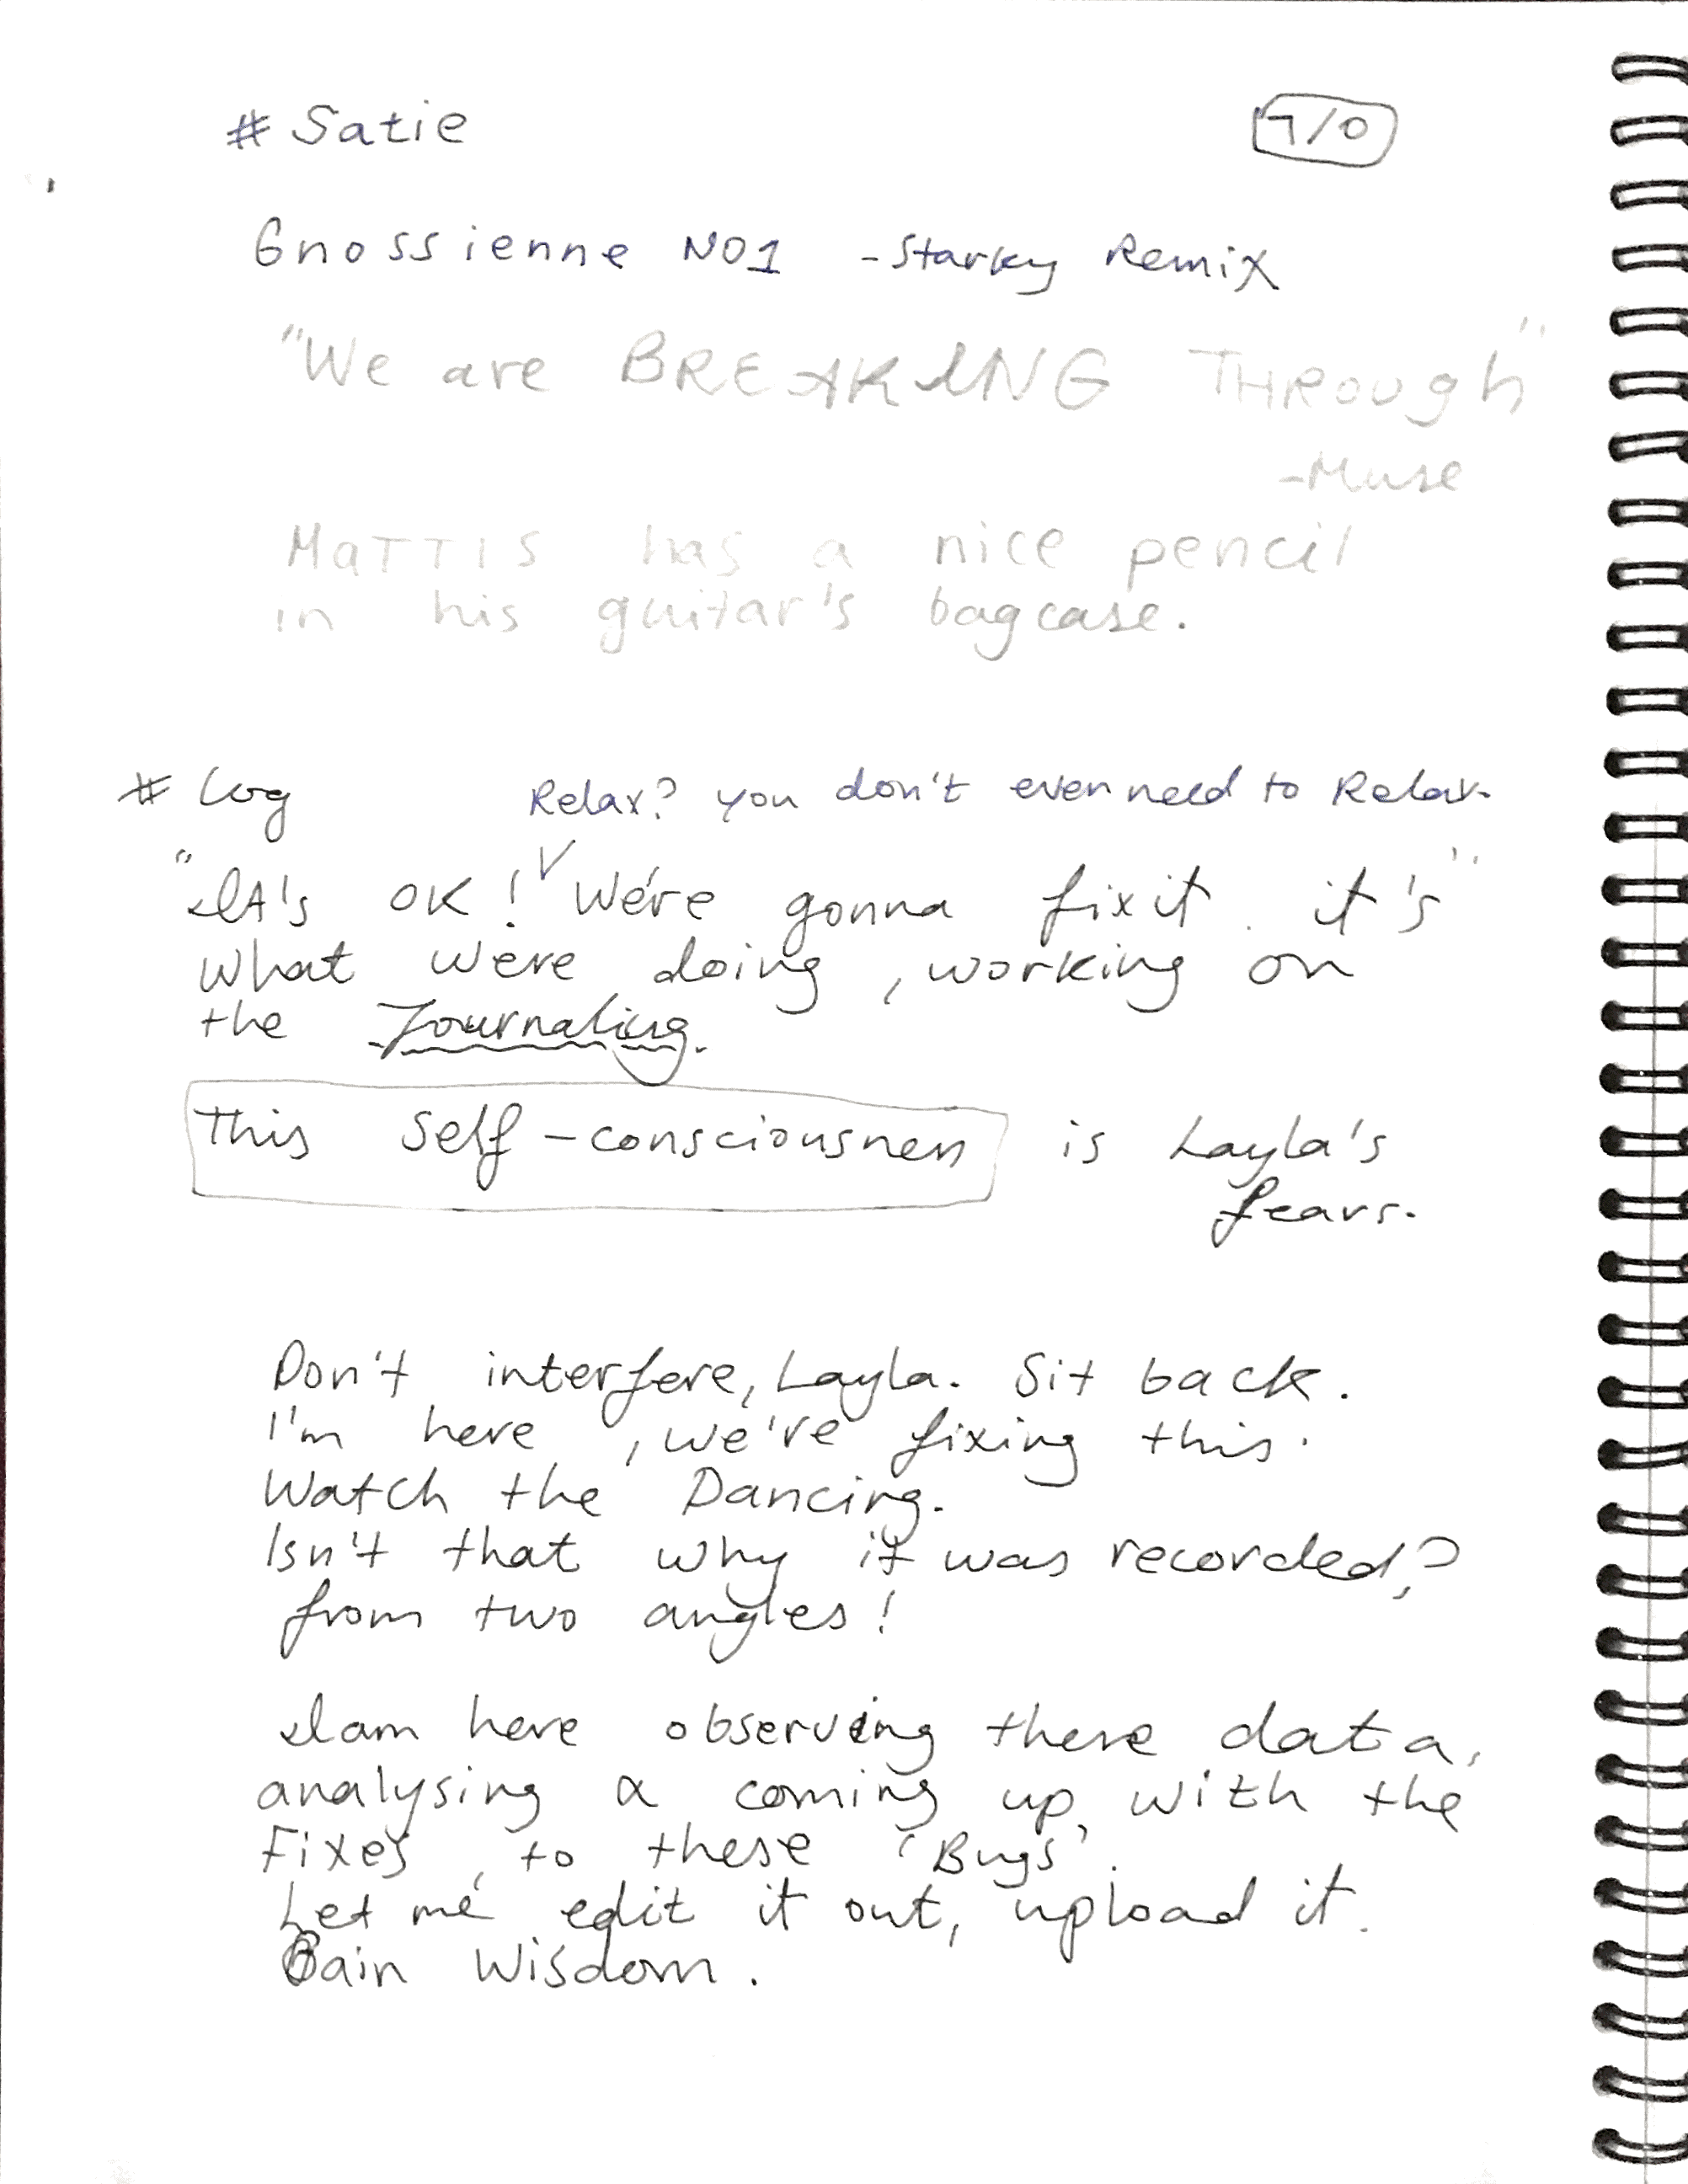 # Satie
7/0
Gnossienne NO1 - Starky Remix
"We are BREAKING THROUGh"
- Muse
MaTTIS has a nice pencil
in his guitar's bagcase.
# Log
Relax? you don't even need to Relax.
"It's OK! V We're gonna fix it. it's"
what we're doing, working on
the Journaling.
This Self-consciousness is Layla's
fears.
Don't interfere, Layla. Sit back.
I'm here, we're fixing this.
Watch the Dancing.
Isn't that why it was recorded,?
from two angles!
I am here observing these data,
analysing & coming up with the
Fixes, to these 'Bugs'.
Let me edit it out, upload it.
Gain Wisdom.